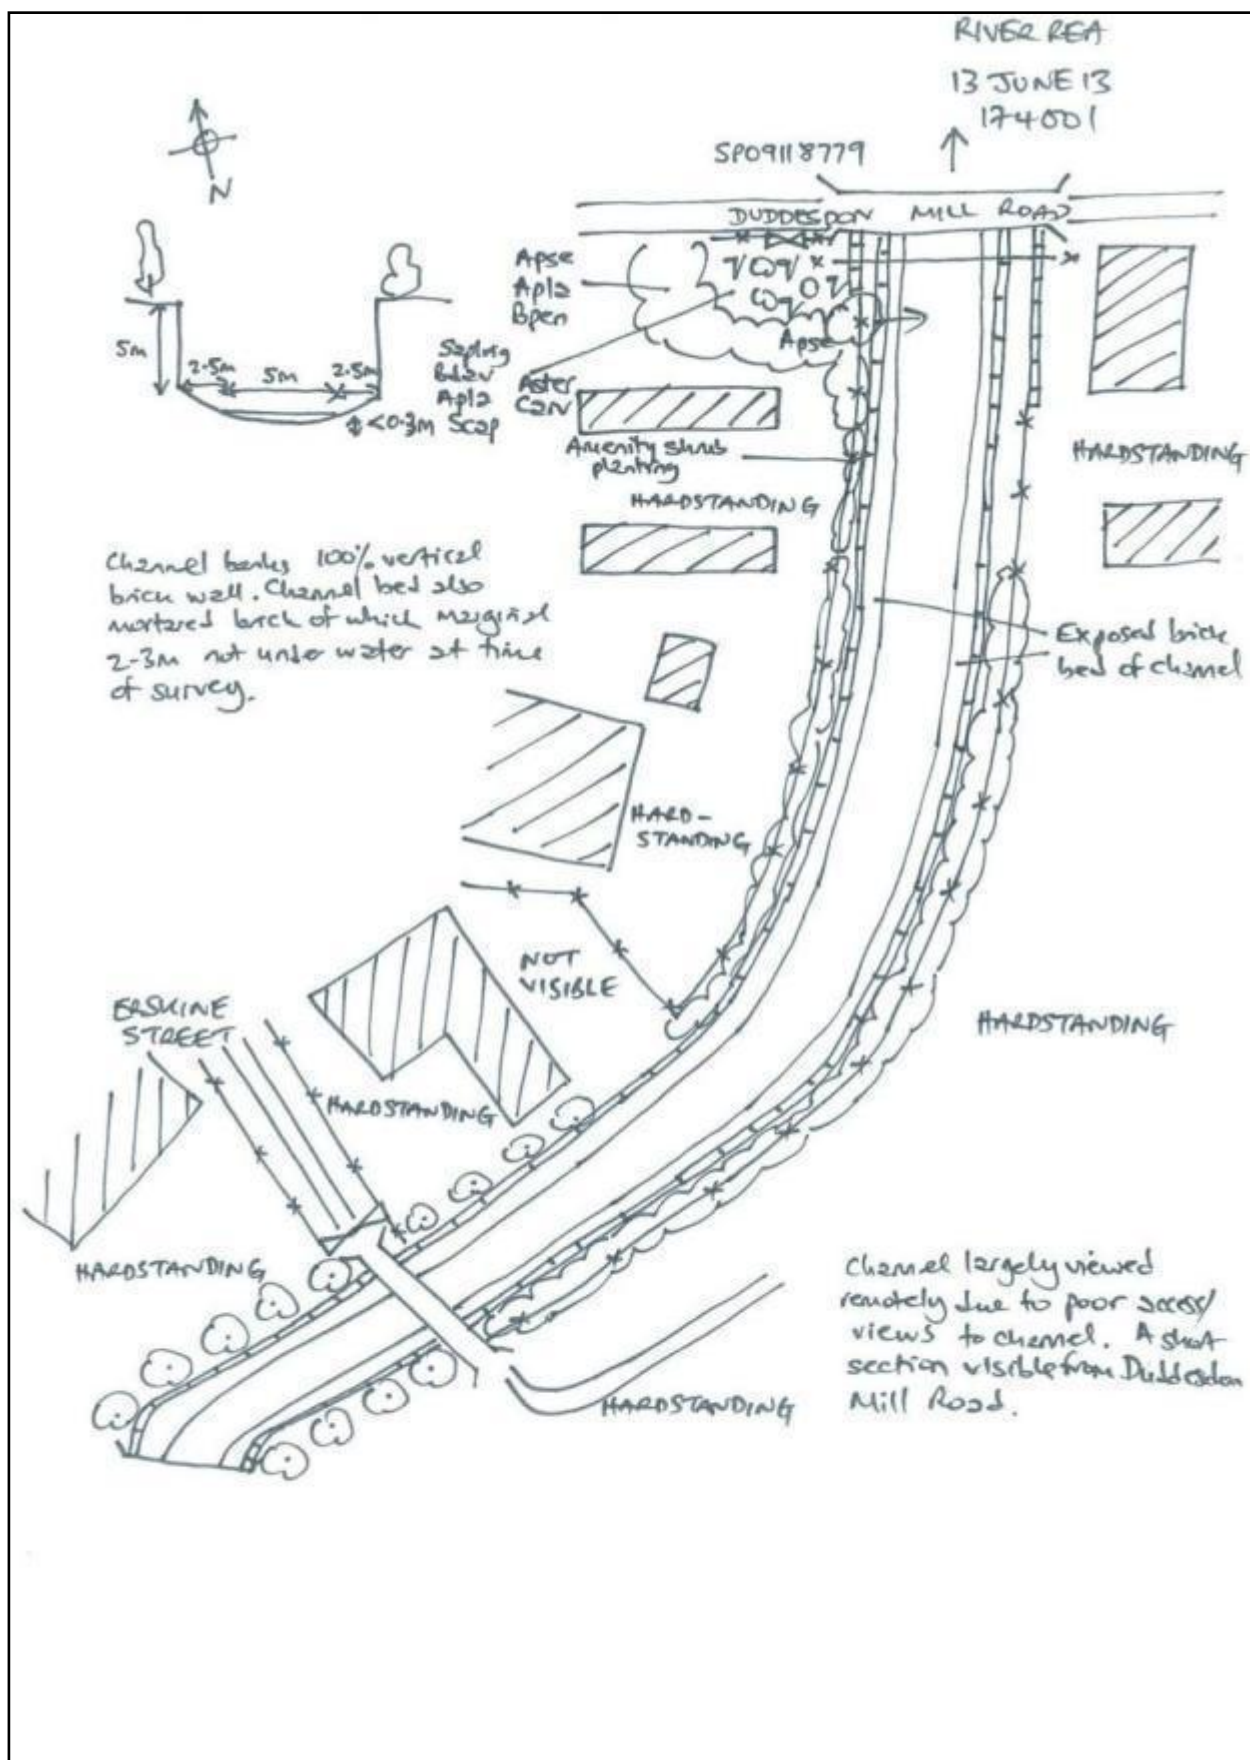 RIVER REA
13 JUNE 13
174001
SP09118779
N
DUDDESDON MILL ROAD
Apse
Apla
Bpen
Apse
5m
2.5m
5m
2.5m
<0.3m
Sapling
Apla
Scap
Aster
Amenity shrub
planting
HARDSTANDING
HARDSTANDING
Channel banks 100% vertical
brick wall. Channel bed also
mortared brick of which marginal
2-3m not under water at time
of survey.
Exposed brick
bed of channel
HARD-
STANDING
NOT
VISIBLE
ERSKINE
STREET
HARDSTANDING
HARDSTANDING
HARDSTANDING
Channel largely viewed
remotely due to poor access/
views to channel. A short
section visible from Duddesdon
Mill Road.
HARDSTANDING